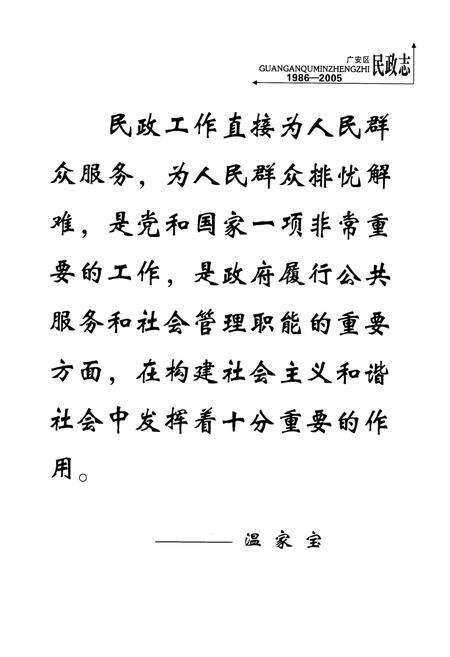 广安区
GUANGANQUMINZHENGZHI
民政志
1986—2005
民政工作直接为人民群
众服务，为人民群众排忧解
难，是党和国家一项非常重
要的工作，是政府履行公共
服务和社会管理职能的重要
方面，在构建社会主义和谐
社会中发挥着十分重要的作
用。
——— 温家宝